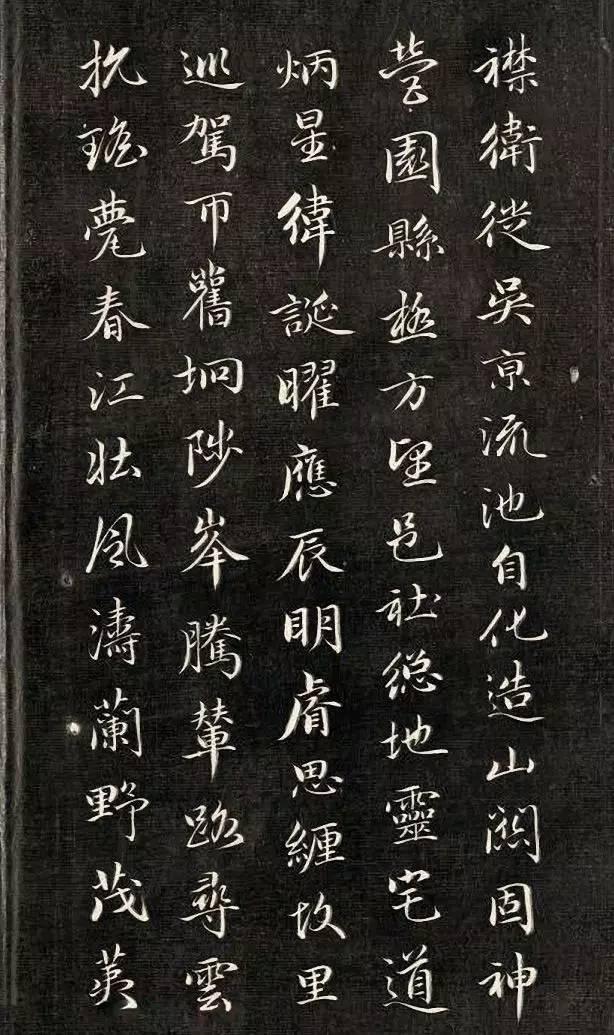 襟衛徙吳京流池自化造山關固神
營園縣極方望邑社緫地靈宅道
炳星緯誕曜應辰明睿思纏故里
巡駕帀舊坰陟峯騰輦路尋雲
抗瑤甍春江壯風濤蘭野茂荑